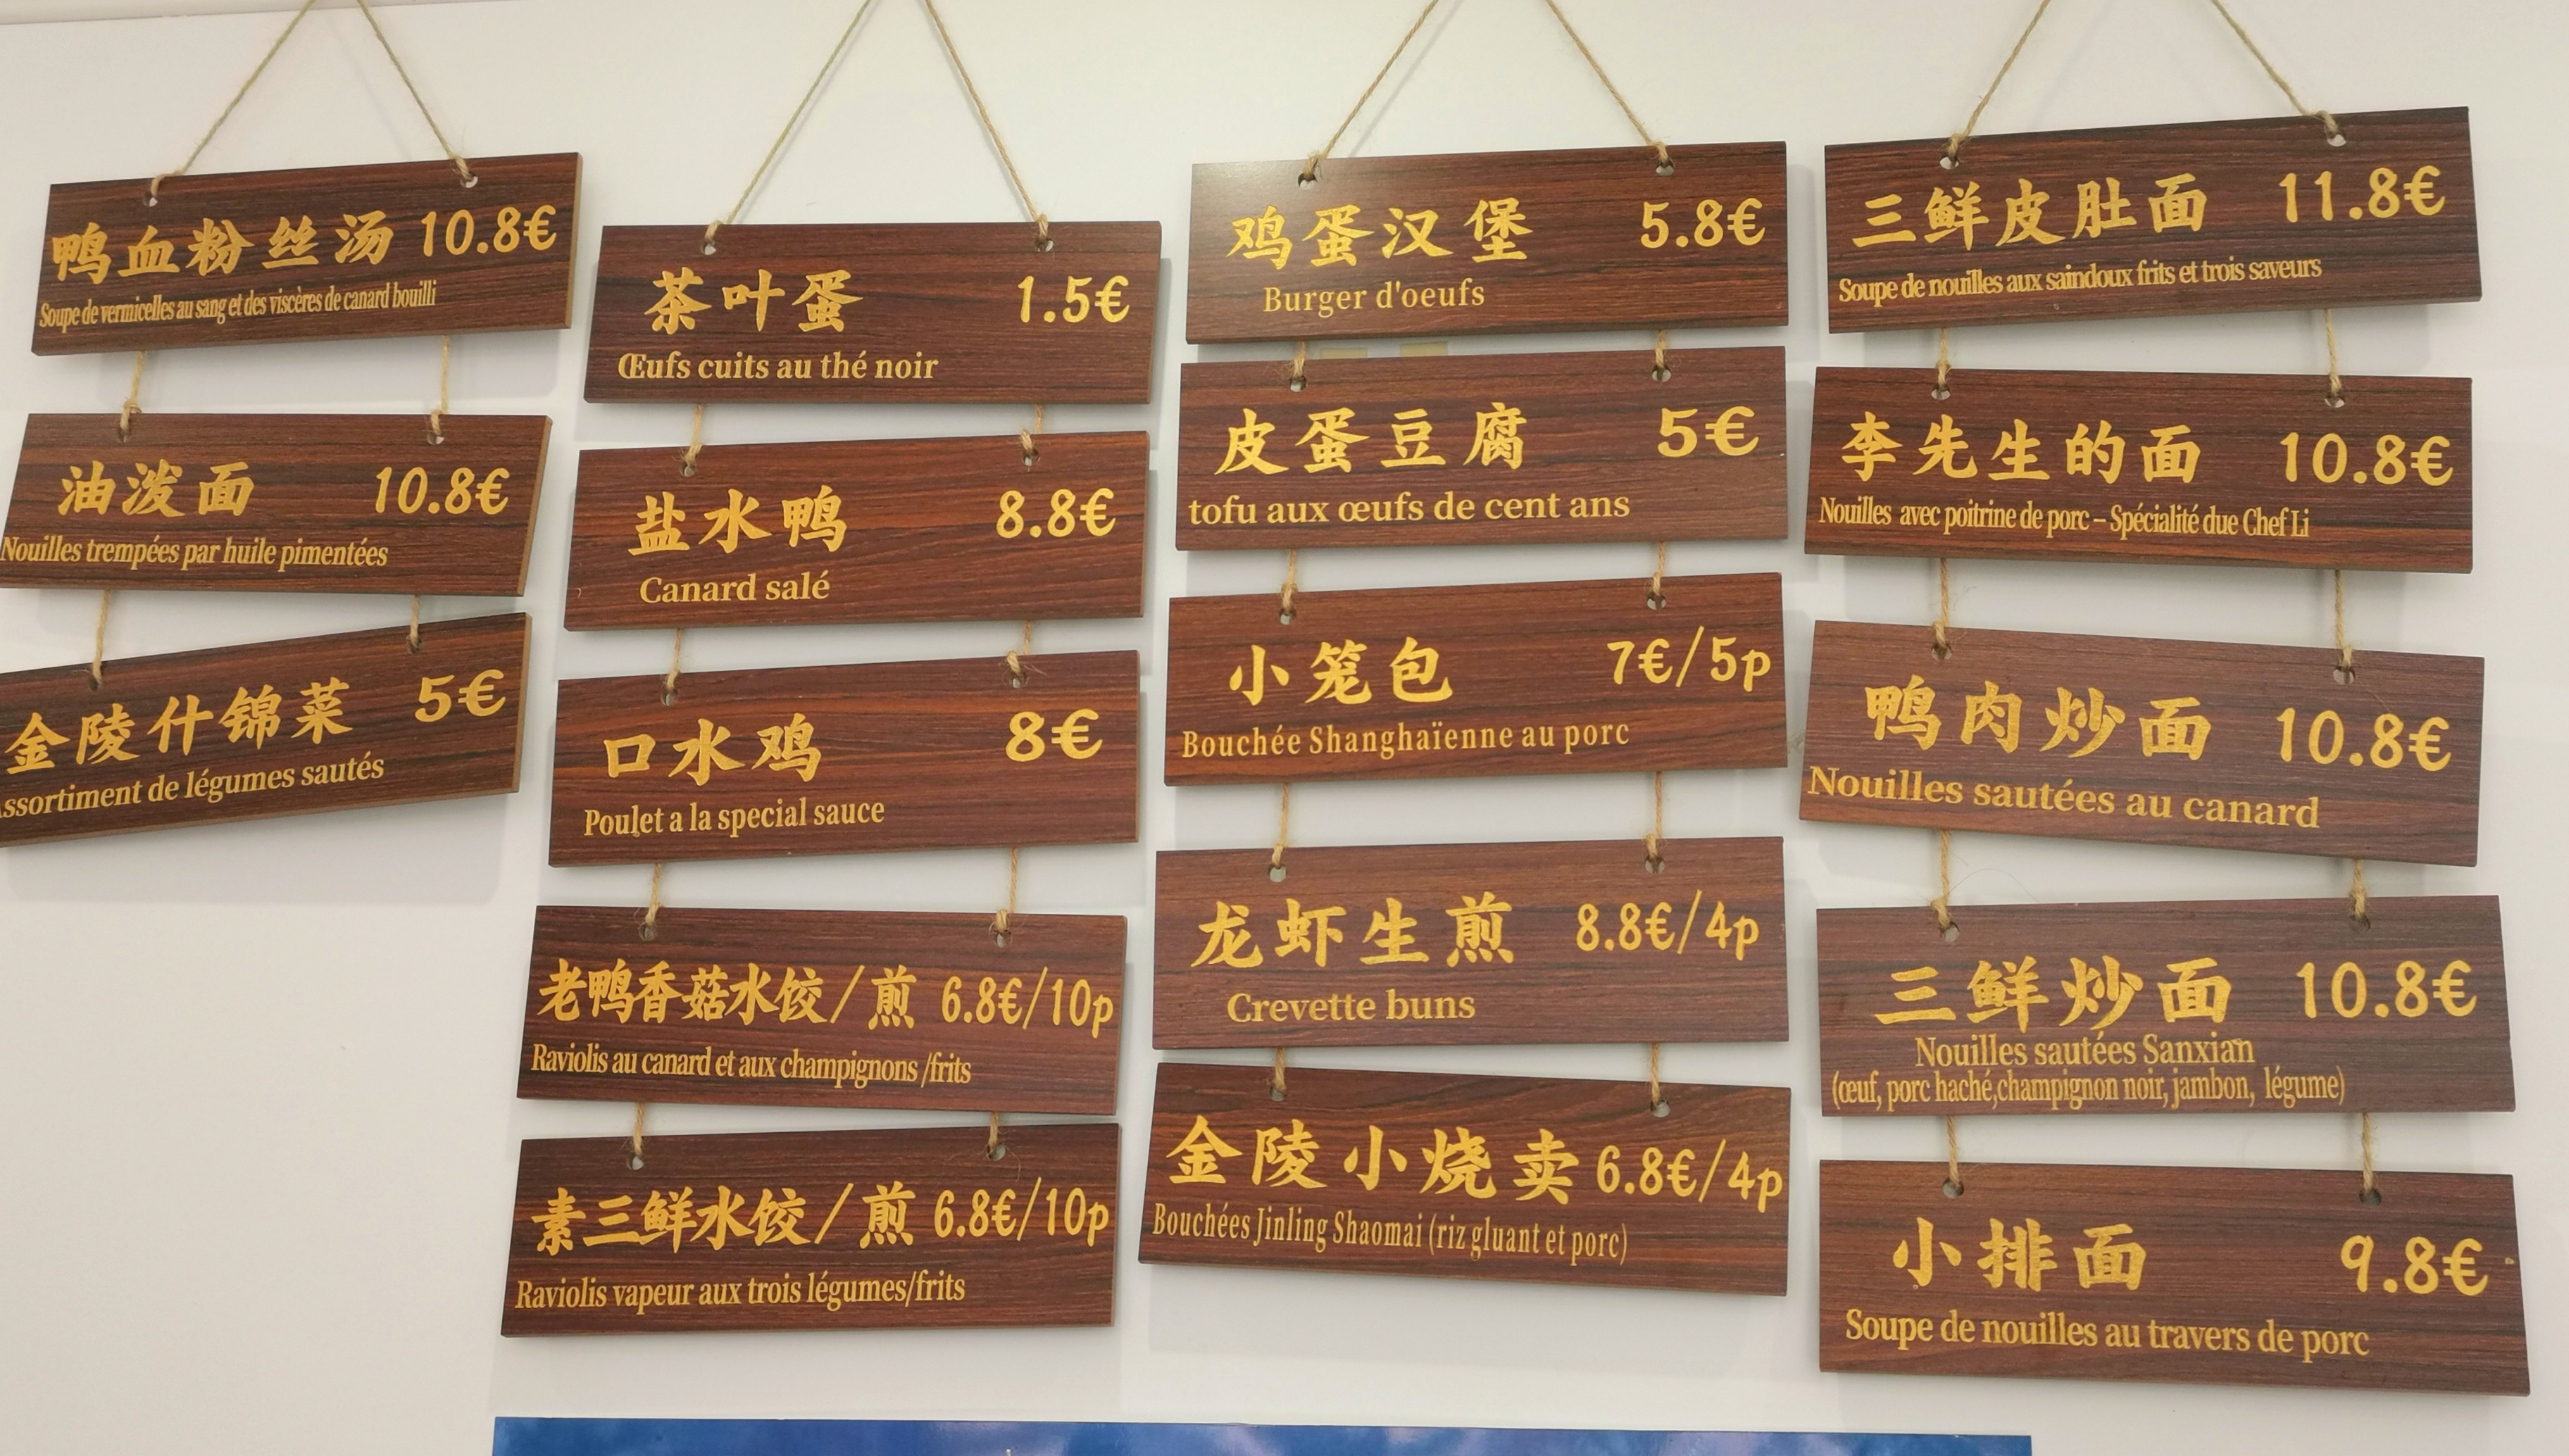 鸭血粉丝汤 10.8€
Soupe de vermicelles au sang et des viscères de canard bouilli
油泼面 10.8€
Nouilles trempées par huile pimentées
金陵什锦菜 5€
ssortiment de légumes sautés
茶叶蛋 1.5€
Œufs cuits au thé noir
盐水鸭 8.8€
Canard salé
口水鸡 8€
Poulet a la special sauce
老鸭香菇水饺/煎 6.8€/10p
Raviolis au canard et aux champignons /frits
素三鲜水饺/煎 6.8€/10p
Raviolis vapeur aux trois légumes/frits
鸡蛋汉堡 5.8€
Burger d'oeufs
皮蛋豆腐 5€
tofu aux œufs de cent ans
小笼包 7€/5p
Bouchée Shanghaïenne au porc
龙虾生煎 8.8€/4p
Crevette buns
金陵小烧卖 6.8€/4p
Bouchées Jinling Shaomai (riz gluant et porc)
三鲜皮肚面 11.8€
Soupe de nouilles aux saindoux frits et trois saveurs
李先生的面 10.8€
Nouilles avec poitrine de porc – Spécialité due Chef Li
鸭肉炒面 10.8€
Nouilles sautées au canard
三鲜炒面 10.8€
Nouilles sautées Sanxian
(œuf, porc haché,champignon noir, jambon, légume)
小排面 9.8€
Soupe de nouilles au travers de porc